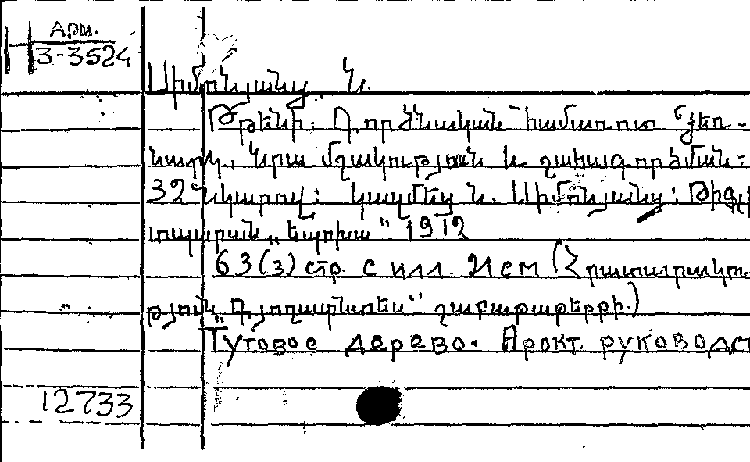 Арм.
3-3524
Սիմոնյանց Ն.
Թթենի։ Գործնական համառոտ ձեռ-
նարկ, նրա մշակության և շահագործման։
32 նկարով։ Կազմեց Ն. Սիմոնյանց։ Թիֆլ
տպարան „Էպոխա" 1912
63(3) стр. с илл. 21 см (Հրատարակու
թյուն „Գյուղատնտես" շաբաթաթերթի.)
Тутовое дерево. Практ. руководст
12733